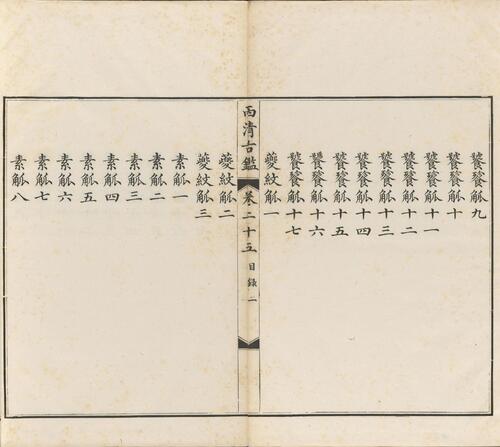 饕餮觚九
饕餮觚十
饕餮觚十一
饕餮觚十二
饕餮觚十三
饕餮觚十四
饕餮觚十五
饕餮觚十六
饕餮觚十七
夔紋觚一
西清古鑑 卷二十五 目錄 二
夔紋觚二
夔紋觚三
素觚一
素觚二
素觚三
素觚四
素觚五
素觚六
素觚七
素觚八